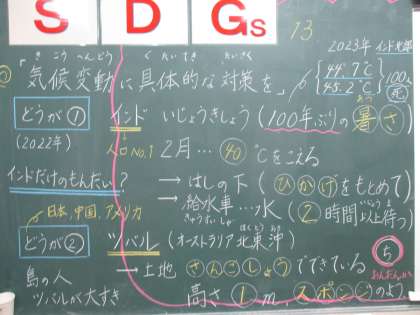 SDGs
13
2023年 インド北部
きこうへんどう ぐたいてき たいさく
「気候変動に具体的な対策を」
44.7℃
45.2℃
100名死
どうが① インド いじょうきしょう(100年ぶりの暑さ)
あつ
(2022年) 人口No.1 2月…40℃をこえる
インドだけのもんだい? → はしの下(ひかげをもとめて)
→ 給水車…水(2時間以上待つ)
きゅうすいしゃ
日本、中国、アメリカ
どうが② ツバル(オーストラリア北東沖)
ほくとうおき
島の人 → 土地 さんごしょうでできている
ツバルが大すき 高さ1m スポンジのよう
5